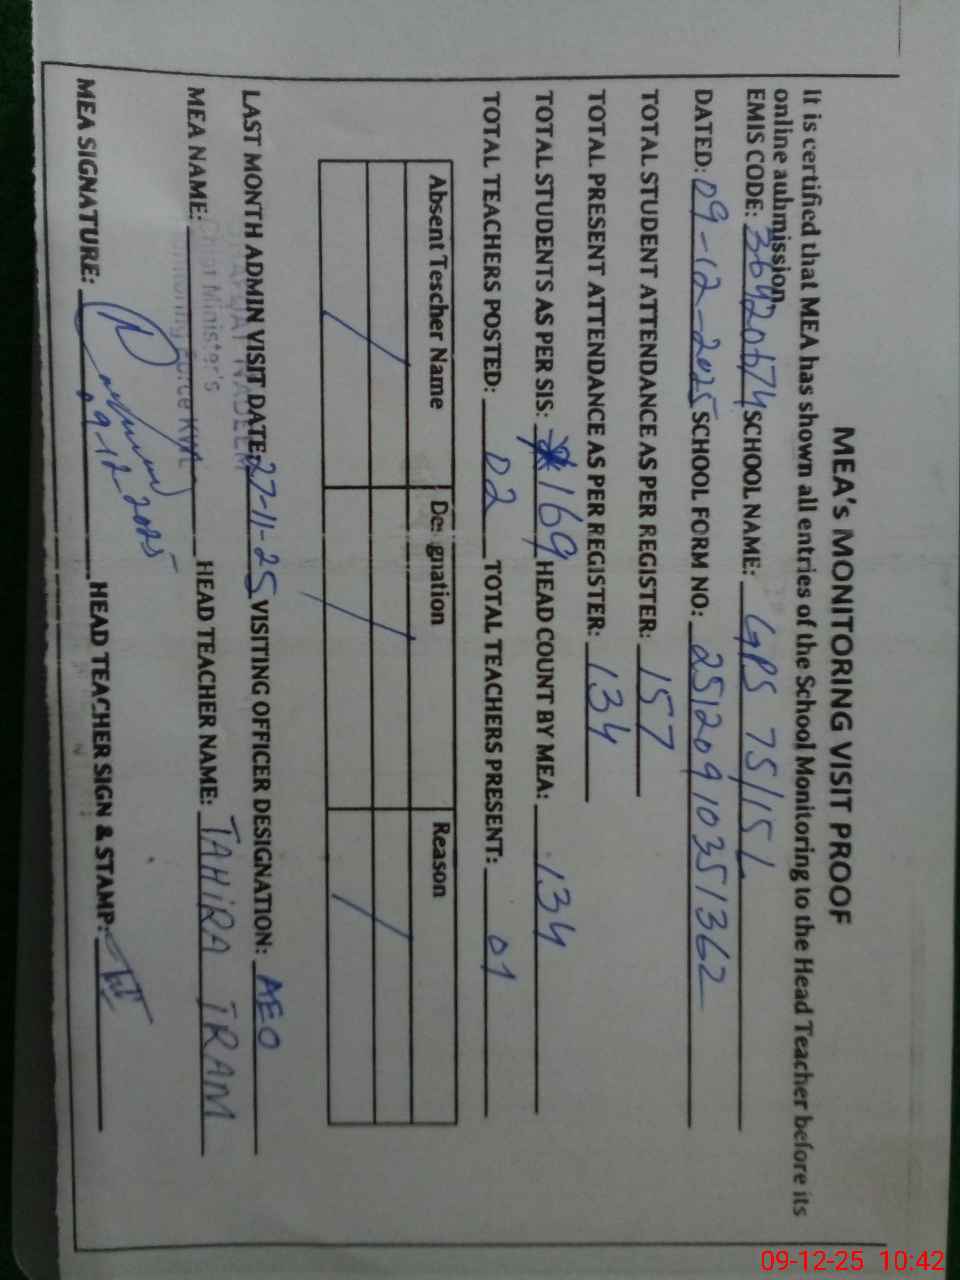 MEA's MONITORING VISIT PROOF
It is certified that MEA has shown all entries of the School Monitoring to the Head Teacher before its
online aubmission,
EMIS CODE: 36920674 SCHOOL NAME: GPS 75/15L
DATED: 09-12-2025 SCHOOL FORM NO: 25120910351362
TOTAL STUDENT ATTENDANCE AS PER REGISTER: 157
TOTAL PRESENT ATTENDANCE AS PER REGISTER: 134
TOTAL STUDENTS AS PER SIS: 169 HEAD COUNT BY MEA: 134
TOTAL TEACHERS POSTED: 02 TOTAL TEACHERS PRESENT: 01
Absent Tescher Name Designation Reason
LAST MONTH ADMIN VISIT DATE: 27-11-25 VISITING OFFICER DESIGNATION: AEO
NADEEM
MEA NAME: HEAD TEACHER NAME: TAHIRA IRAM
Chief Minister's
Monitoring Force KWL
MEA SIGNATURE: HEAD TEACHER SIGN & STAMP:
9-12-2025
09-12-25 10:42